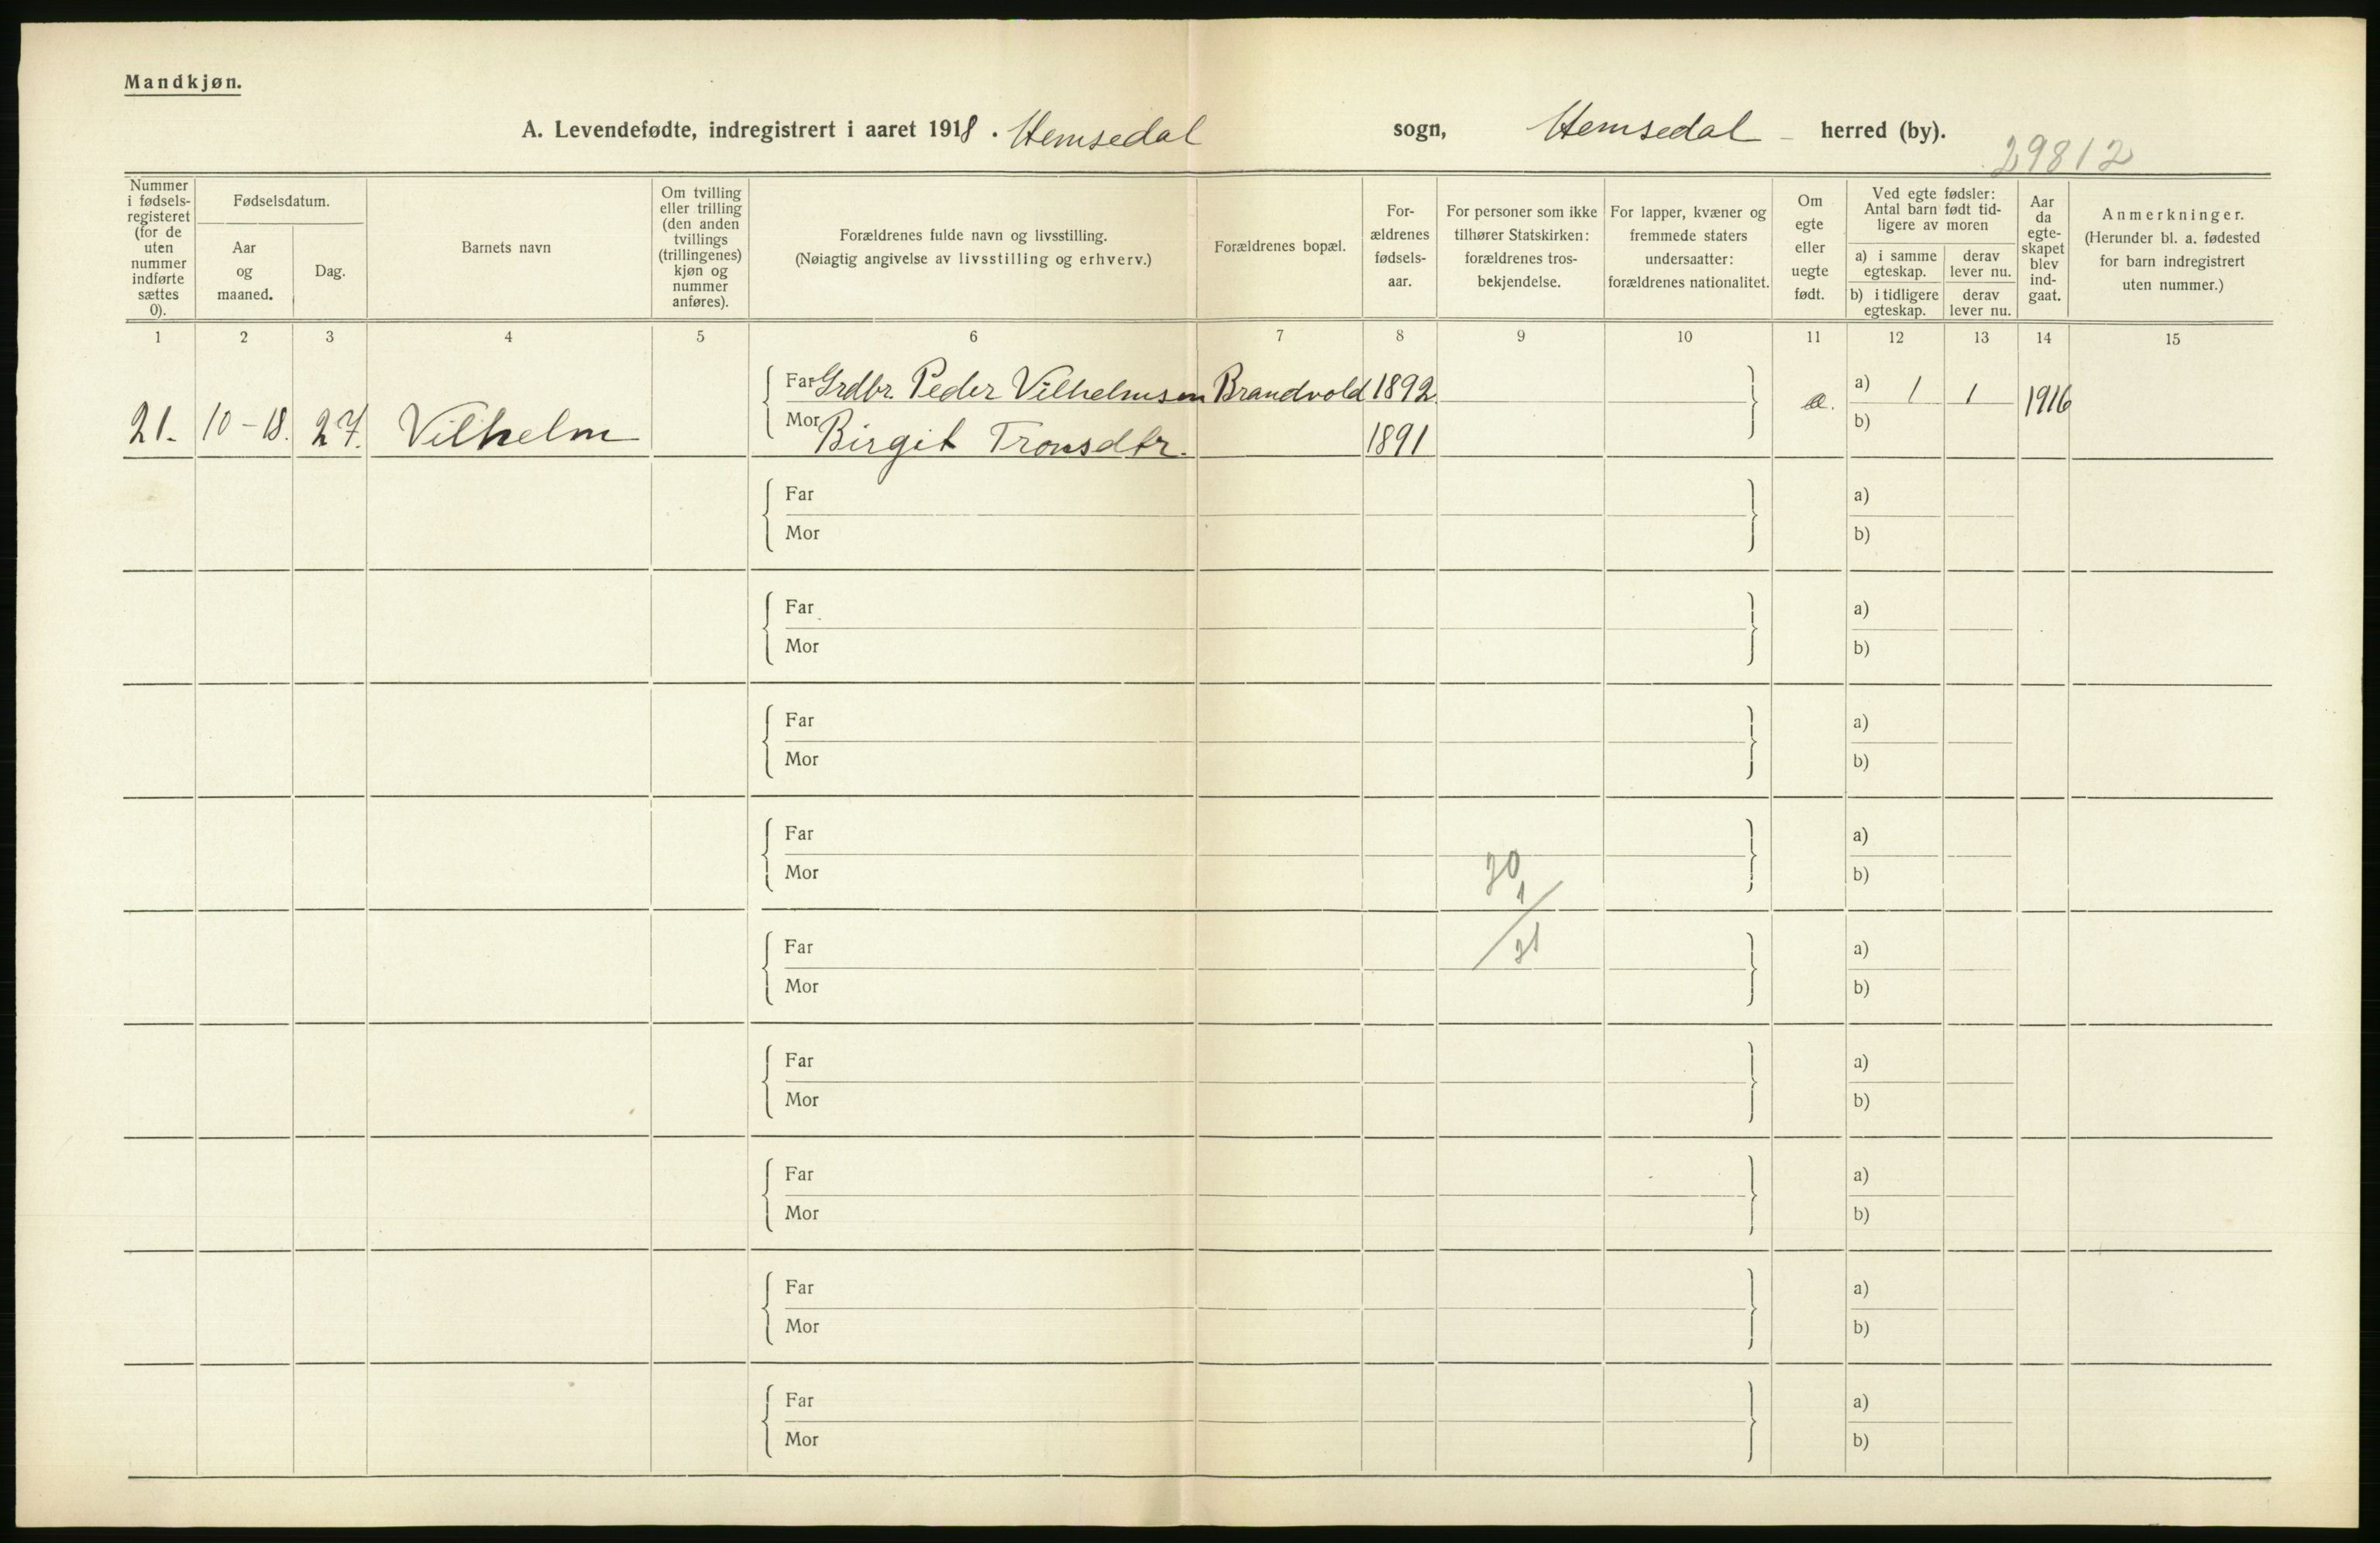 Mandkjøn.
A. Levendefødte, indregistrert i aaret 1918. Hemsedal sogn, Hemsedal herred (by).
29812
Nummer i fødsels-registeret (for de uten nummer indførte sættes 0).
Fødselsdatum.
Aar og maaned.
Dag.
Barnets navn
Om tvilling eller trilling (den anden tvillings (trillingenes) kjøn og nummer anføres).
Forældrenes fulde navn og livsstilling.
(Nøiagtig angivelse av livsstilling og erhverv.)
Forældrenes bopæl.
For-ældrenes fødsels-aar.
For personer som ikke tilhører Statskirken: forældrenes tros-bekjendelse.
For lapper, kvæner og fremmede staters undersaatter: forældrenes nationalitet.
Om egte eller uegte født.
Ved egte fødsler: Antal barn født tid-ligere av moren
a) i samme egteskap.
derav lever nu.
b) i tidligere egteskap.
derav lever nu.
Aar da egte-skapet blev ind-gaat.
Anmerkninger.
(Herunder bl. a. fødested for barn indregistrert uten nummer.)
1 2 3 4 5 6 7 8 9 10 11 12 13 14 15
Far Grdbr. Peder Vilhelmsen Brandvold 1892 a) 1 1
21. 10-18. 27. Vilhelm e. 1916
Mor Birgit Tronsdtr. 1891 b)
Far a)
Mor b)
Far a)
Mor b)
Far a)
Mor b)
Far a)
Mor b)
Far a)
Mor b)
Far a)
Mor b)
Far a)
Mor b)
Far a)
Mor b)
Far a)
Mor b)